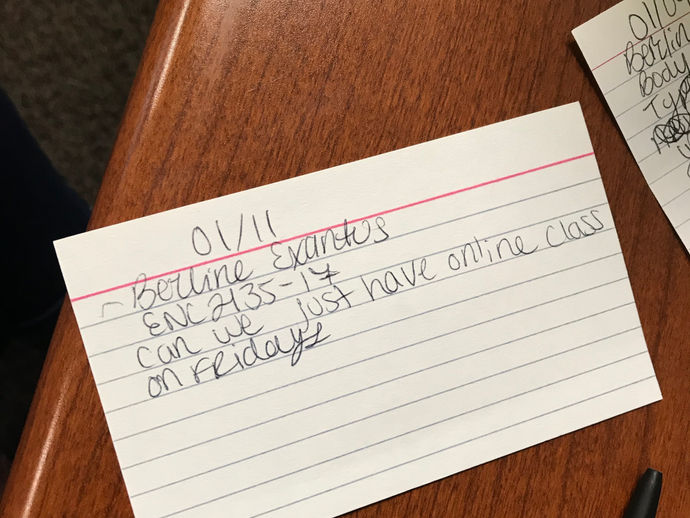 01/11
Berline Exantus
ENC2135-17
can we just have online class
on FRidays
01/0
Berlin
Body
Ty